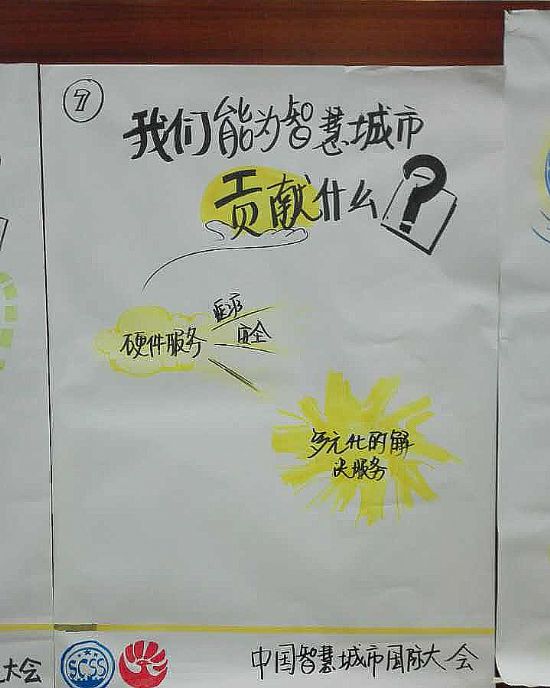 7
我们能为智慧城市
贡献什么?
硬件服务
医疗
安全
多元化的解
决服务
大会
SCSS
中国智慧城市国际大会